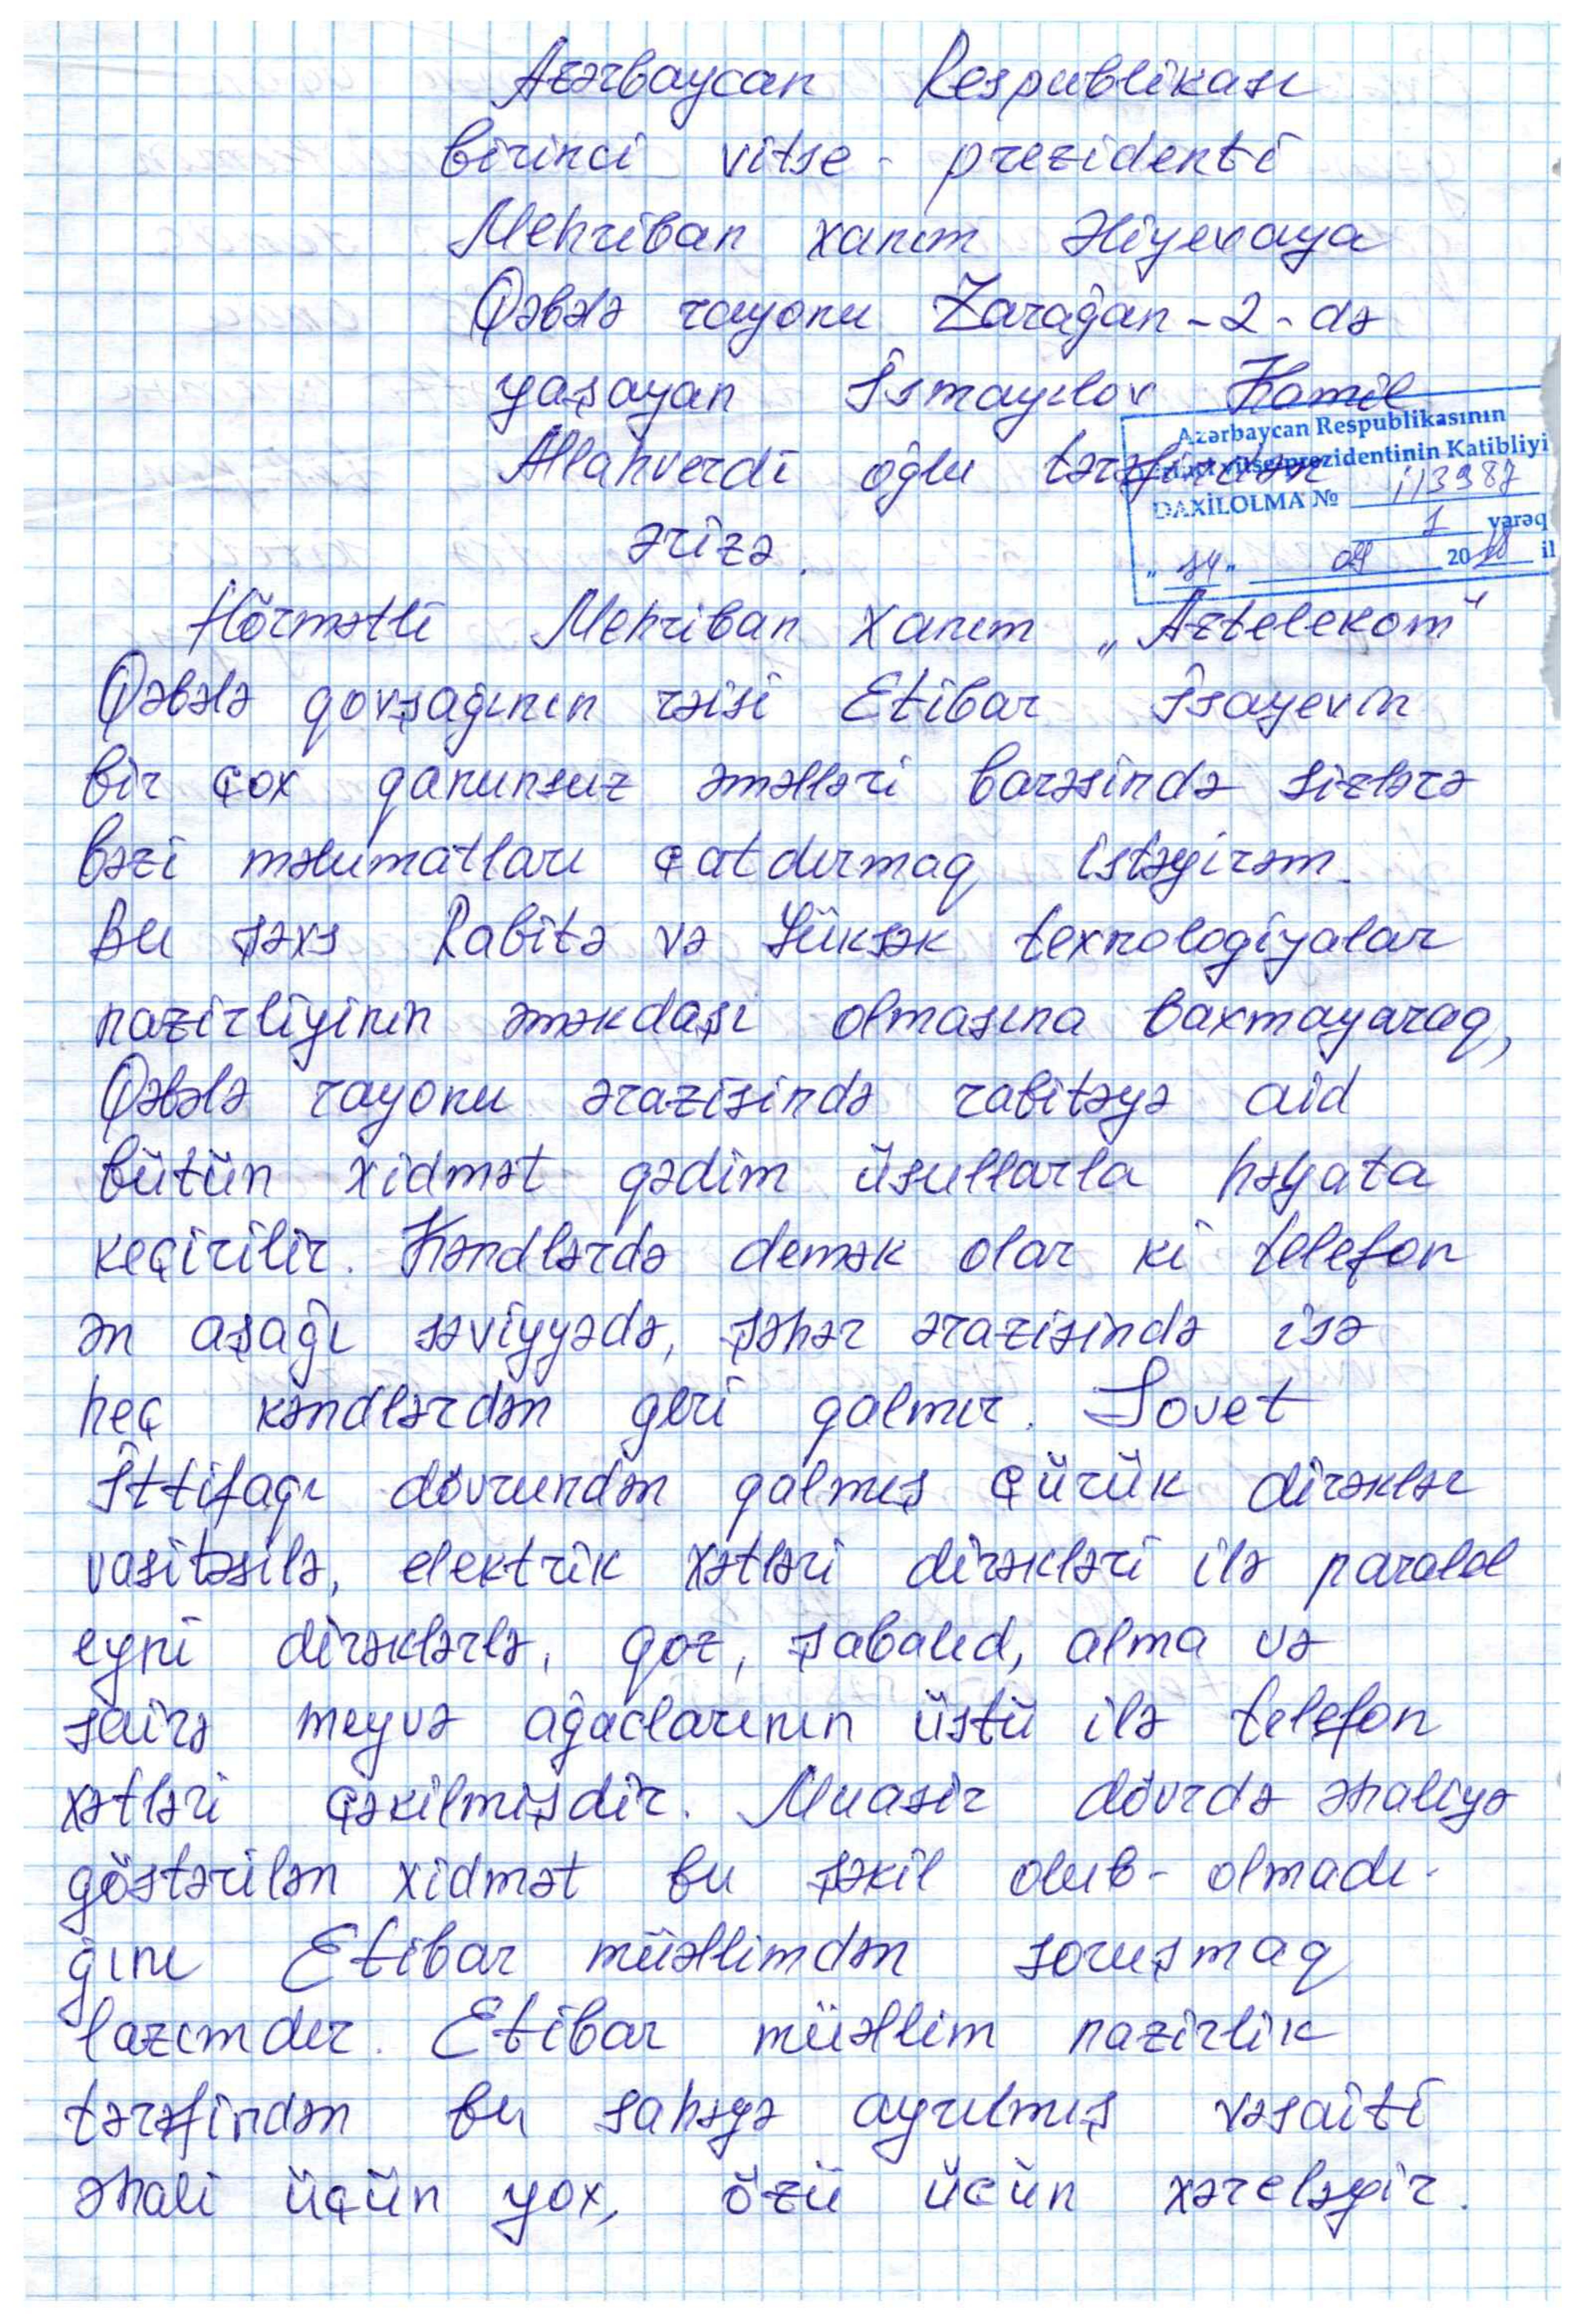 Azərbaycan Respublikası
birinci vitse - prezidenti
Mehriban xanım Əliyevaya
Qəbələ rayonu Zarağan-2-də
yaşayan İsmayılov Kamil
Allahverdi oğlu tərəfindən
Azərbaycan Respublikasının
vitse-prezidentinin Katibliyi
DAXİLOLMA № 113987
1 vərəq
" 14 " 09 2018 il
ərizə.
Hörmətli Mehriban xanım „Aztelekom"
Qəbələ qovşağının rəisi Etibar İsayevin
bir çox qanunsuz əməlləri barəsində sizlərə
bəzi məlumatları çatdırmaq istəyirəm.
Bu şəxs Rabitə və Yüksək texnologiyalar
nazirliyinin əməkdaşı olmasına baxmayaraq,
Qəbələ rayonu ərazisində rabitəyə aid
bütün xidmət qədim üsullarla həyata
keçirilir. Kəndlərdə demək olar ki telefon
ən aşağı səviyyədə, şəhər ərazisində isə
heç kəndlərdən geri qalmır. Sovet
İttifaqı dövrundən qalmış çürük dirəklər
vasitəsilə, elektrik xətləri dirəkləri ilə paralel
eyni dirəklərlə, qoz, şabalıd, alma və
sairə meyvə ağaclarının üstü ilə telefon
xətləri çəkilmişdir. Muasir dövrdə əhaliyə
göstərilən xidmət bu şəkil olub-olmadı-
ğını Etibar müəllimdən soruşmaq
lazımdır. Etibar müəllim nazirlik
tərəfindən bu sahəyə ayrılmış vəsaiti
əhali üçün yox, özü üçün xərcləyir.